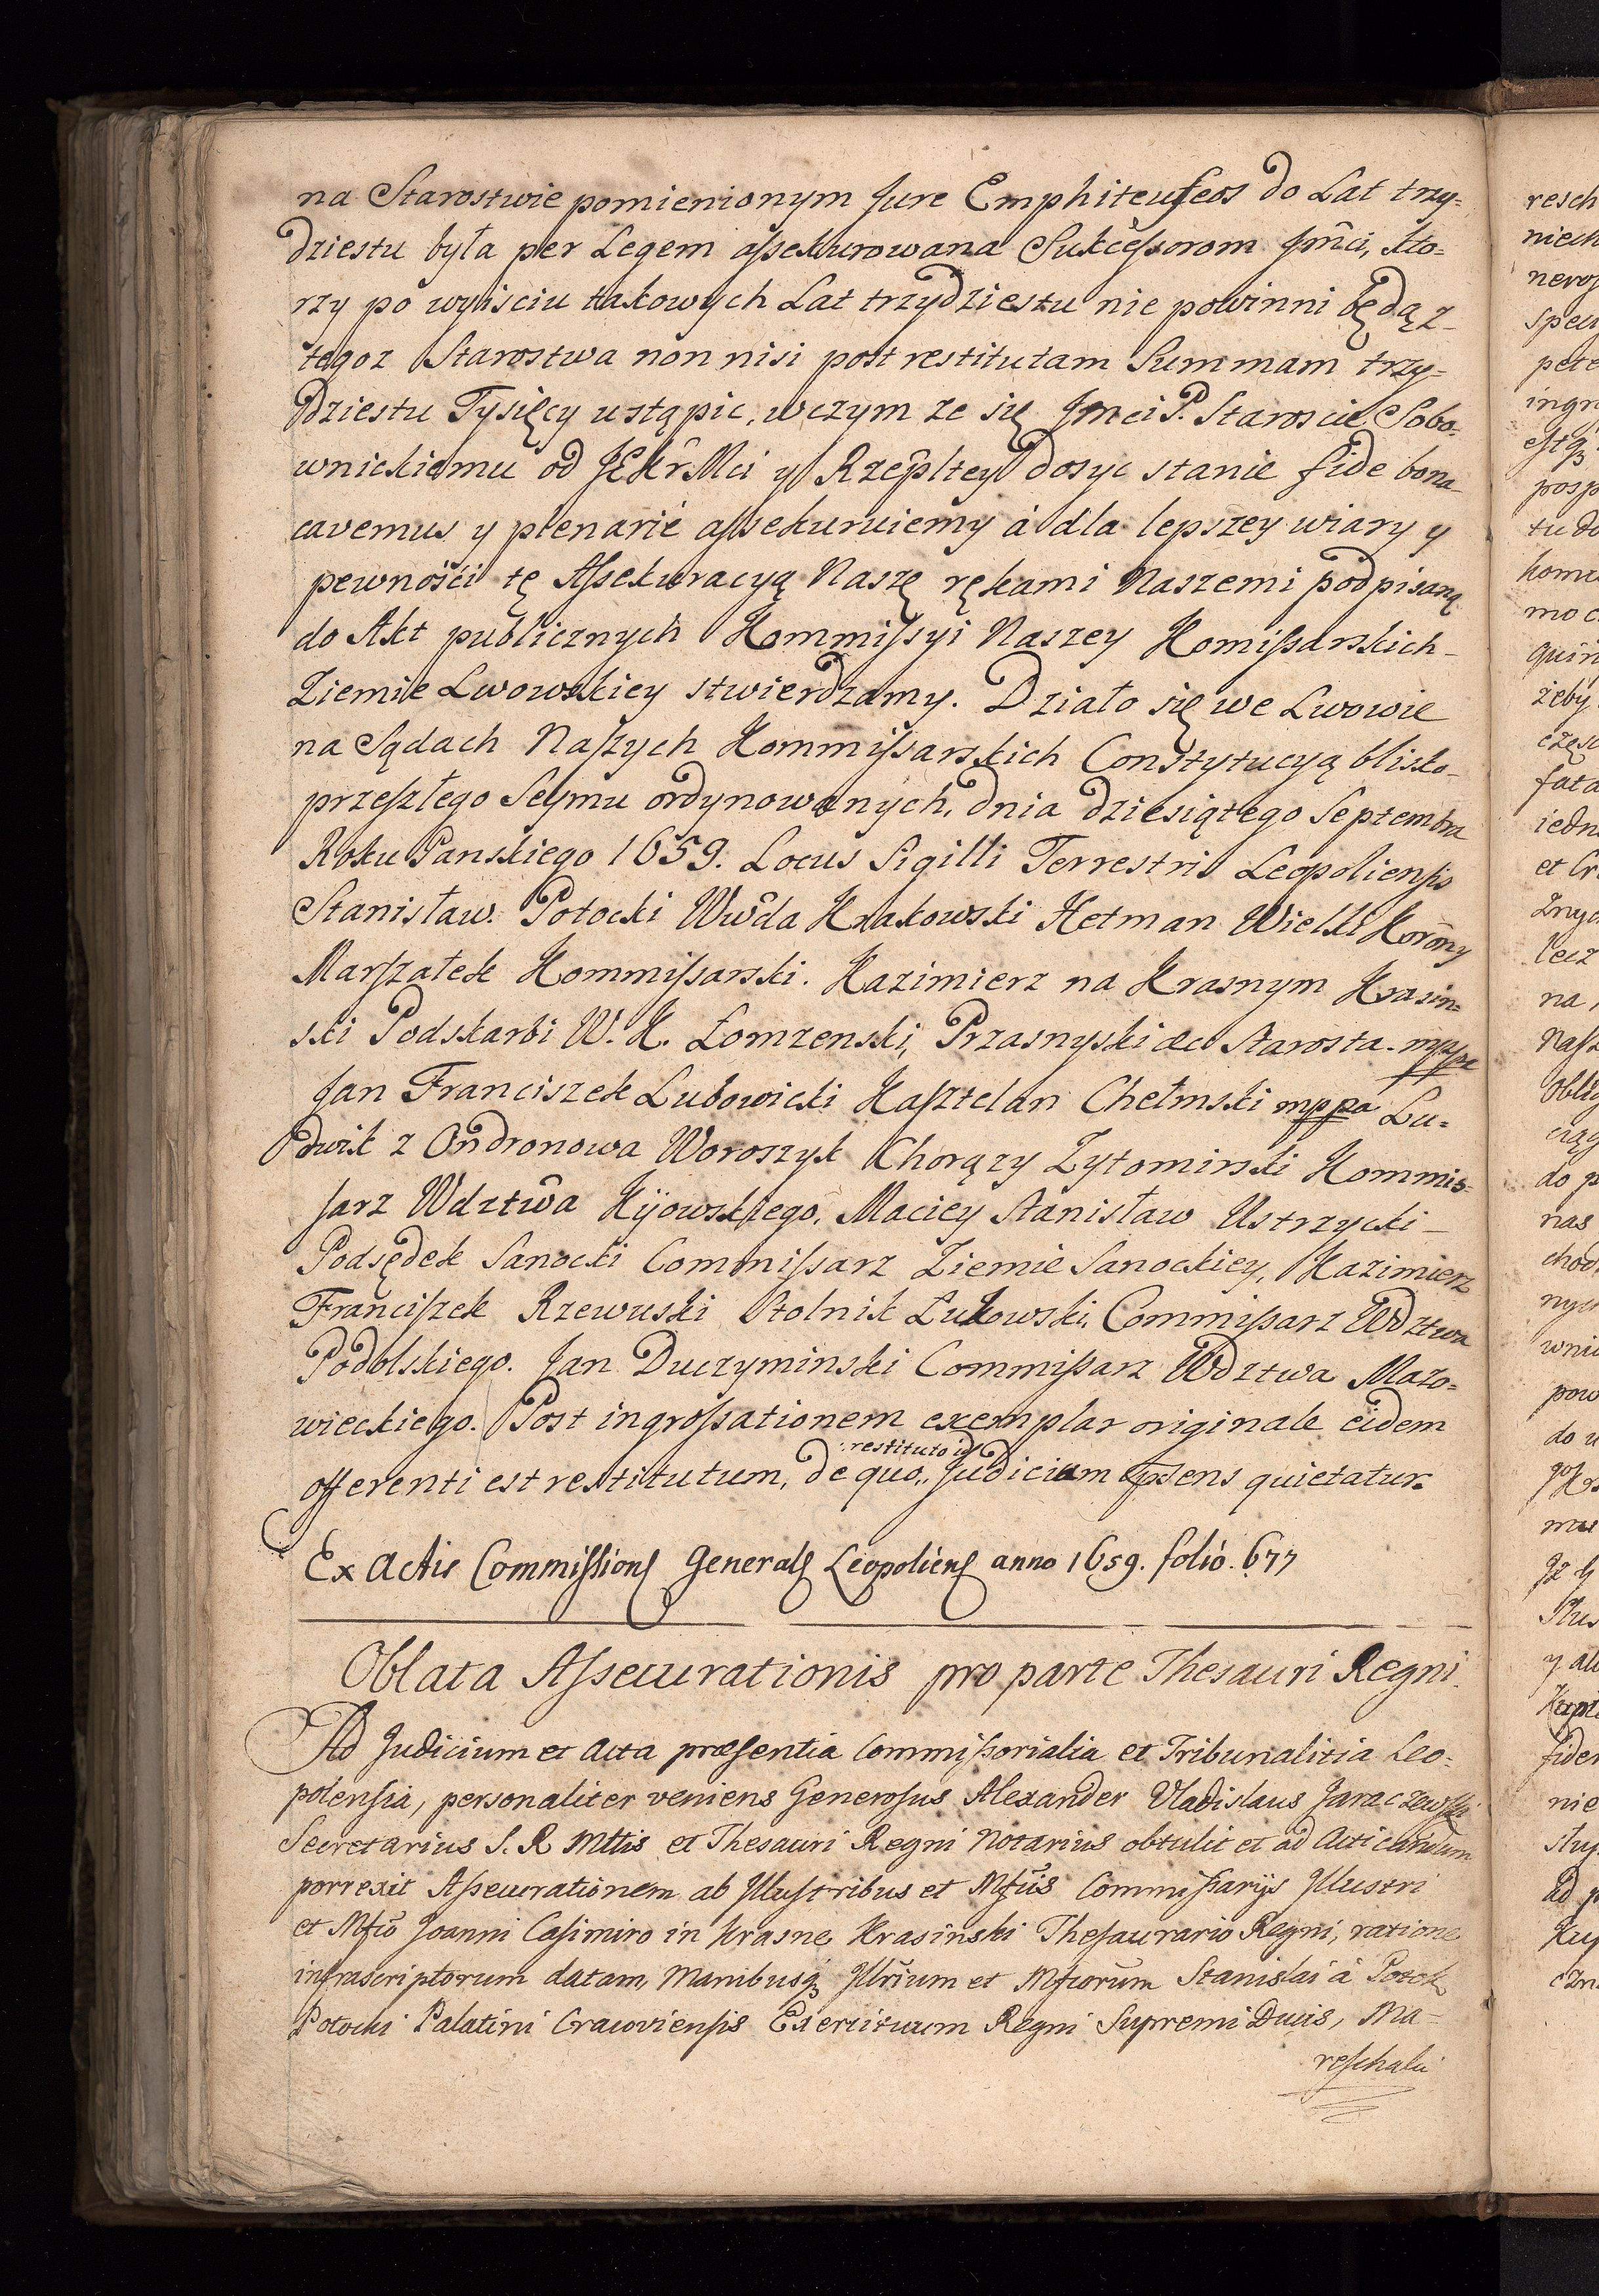 na Starostwie pomienionym Jure Emphiteuseos do Lat trzy=
dziestu była per Legem assekurowana Sukcessorom Jm̃ci, kto=
rzy po wyisciu takowych Lat trzydziestu nie powinni będą z-
tegoz Starostwa non nisi post restitutam Summam trzy=
dziestu Tysięcy ustąpic, wczym ze się Jmci P. Staroscie Sobo-
wnickiemu od JEKr̂Mci y Rzep̂ltey dosyc stanie fide bona
cavemus y plenarié assekuruiemy á dla lepszey wiary y
pewności tę Assekuracyą Naszę rękami Naszemi podpisaną
do Akt publicznych Kommissyi Naszey Komissarskich-
Ziemie Lwowskiey stwierdzamy. Działo się we Lwowie
na Sądach Naszych Kommissarskich Constytucyą blisko-
przeszłego Seymu ordynowanych, dnia dziesiątego Septembra
Roku Panskiego 1659. Locus Sigilli Terrestris Leopoliensis
Stanisław Potocki Ww̑da Krakowski Hetman Wielki Korõny
Marszałek Kommissarski. Kazimierz na Krasnym Krasin=
ski Podskarbi W. K. Łomzenski, Przasnyski &c Starosta. mppa
Jan Franciszek Lubowicki Kasztelan Chełmski mppa Lu=
dwik z Ondronowa Woroszyk Chorązy Zytomirski Kommis=
sarz Wdztŵa Kijowskiego, Maciey Stanisław Ustrzycki-
Podsędek Sanocki Commissarz Ziemie Sanockiey, Kazimierz
Franciszek Rzewuski Stolnik Łukowski, Commissarz Wdztwa
Podolskiego. Jan Duczyminski Commissarz Wdztwa Mazo=
wieckiego. Post ingrossationem exemplar originale eidem
restituto
offerenti est restitutum, de quo, Judicium quietatur.
Ex Actis Commissionis Generalis Leopoliens anno 1659. folio. 677
Oblata Assecurationis pro parte Thesauri Regni.
Ad Judicium et Acta præsentia Commissorialia et Tribunalitia Leo=
polensia, personaliter veniens Generosus Alexander Vladislaus Jaraczewski
Secretarius S. R Mttis et Thesauri Regni Notarius obtulit et ad Acticandum
porrexit Assecurationem ab Illustribus et Mfc̃is Commissarijs Illustri
et Mfc̃o Joanni Casimiro in Krasne Krasinski Thesaurario Regni, ratione
infrascriptorum datam, Manibusq̨ Illr̃ium et Mfcor̃um Stanislai á Potok
Potocki Palatini Cracoviensis Exercituum Regni Supremi Ducis, Ma=
reschalci